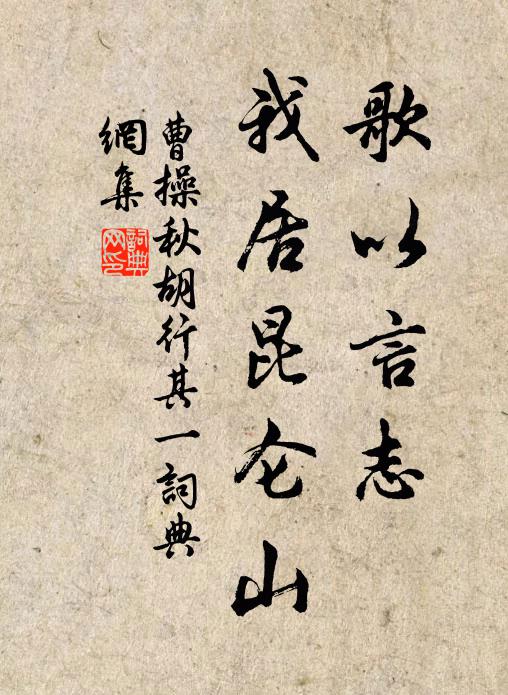 歌以言志
我居昆仑山
曹操秋胡行其一詞典
網集
詞典
网印